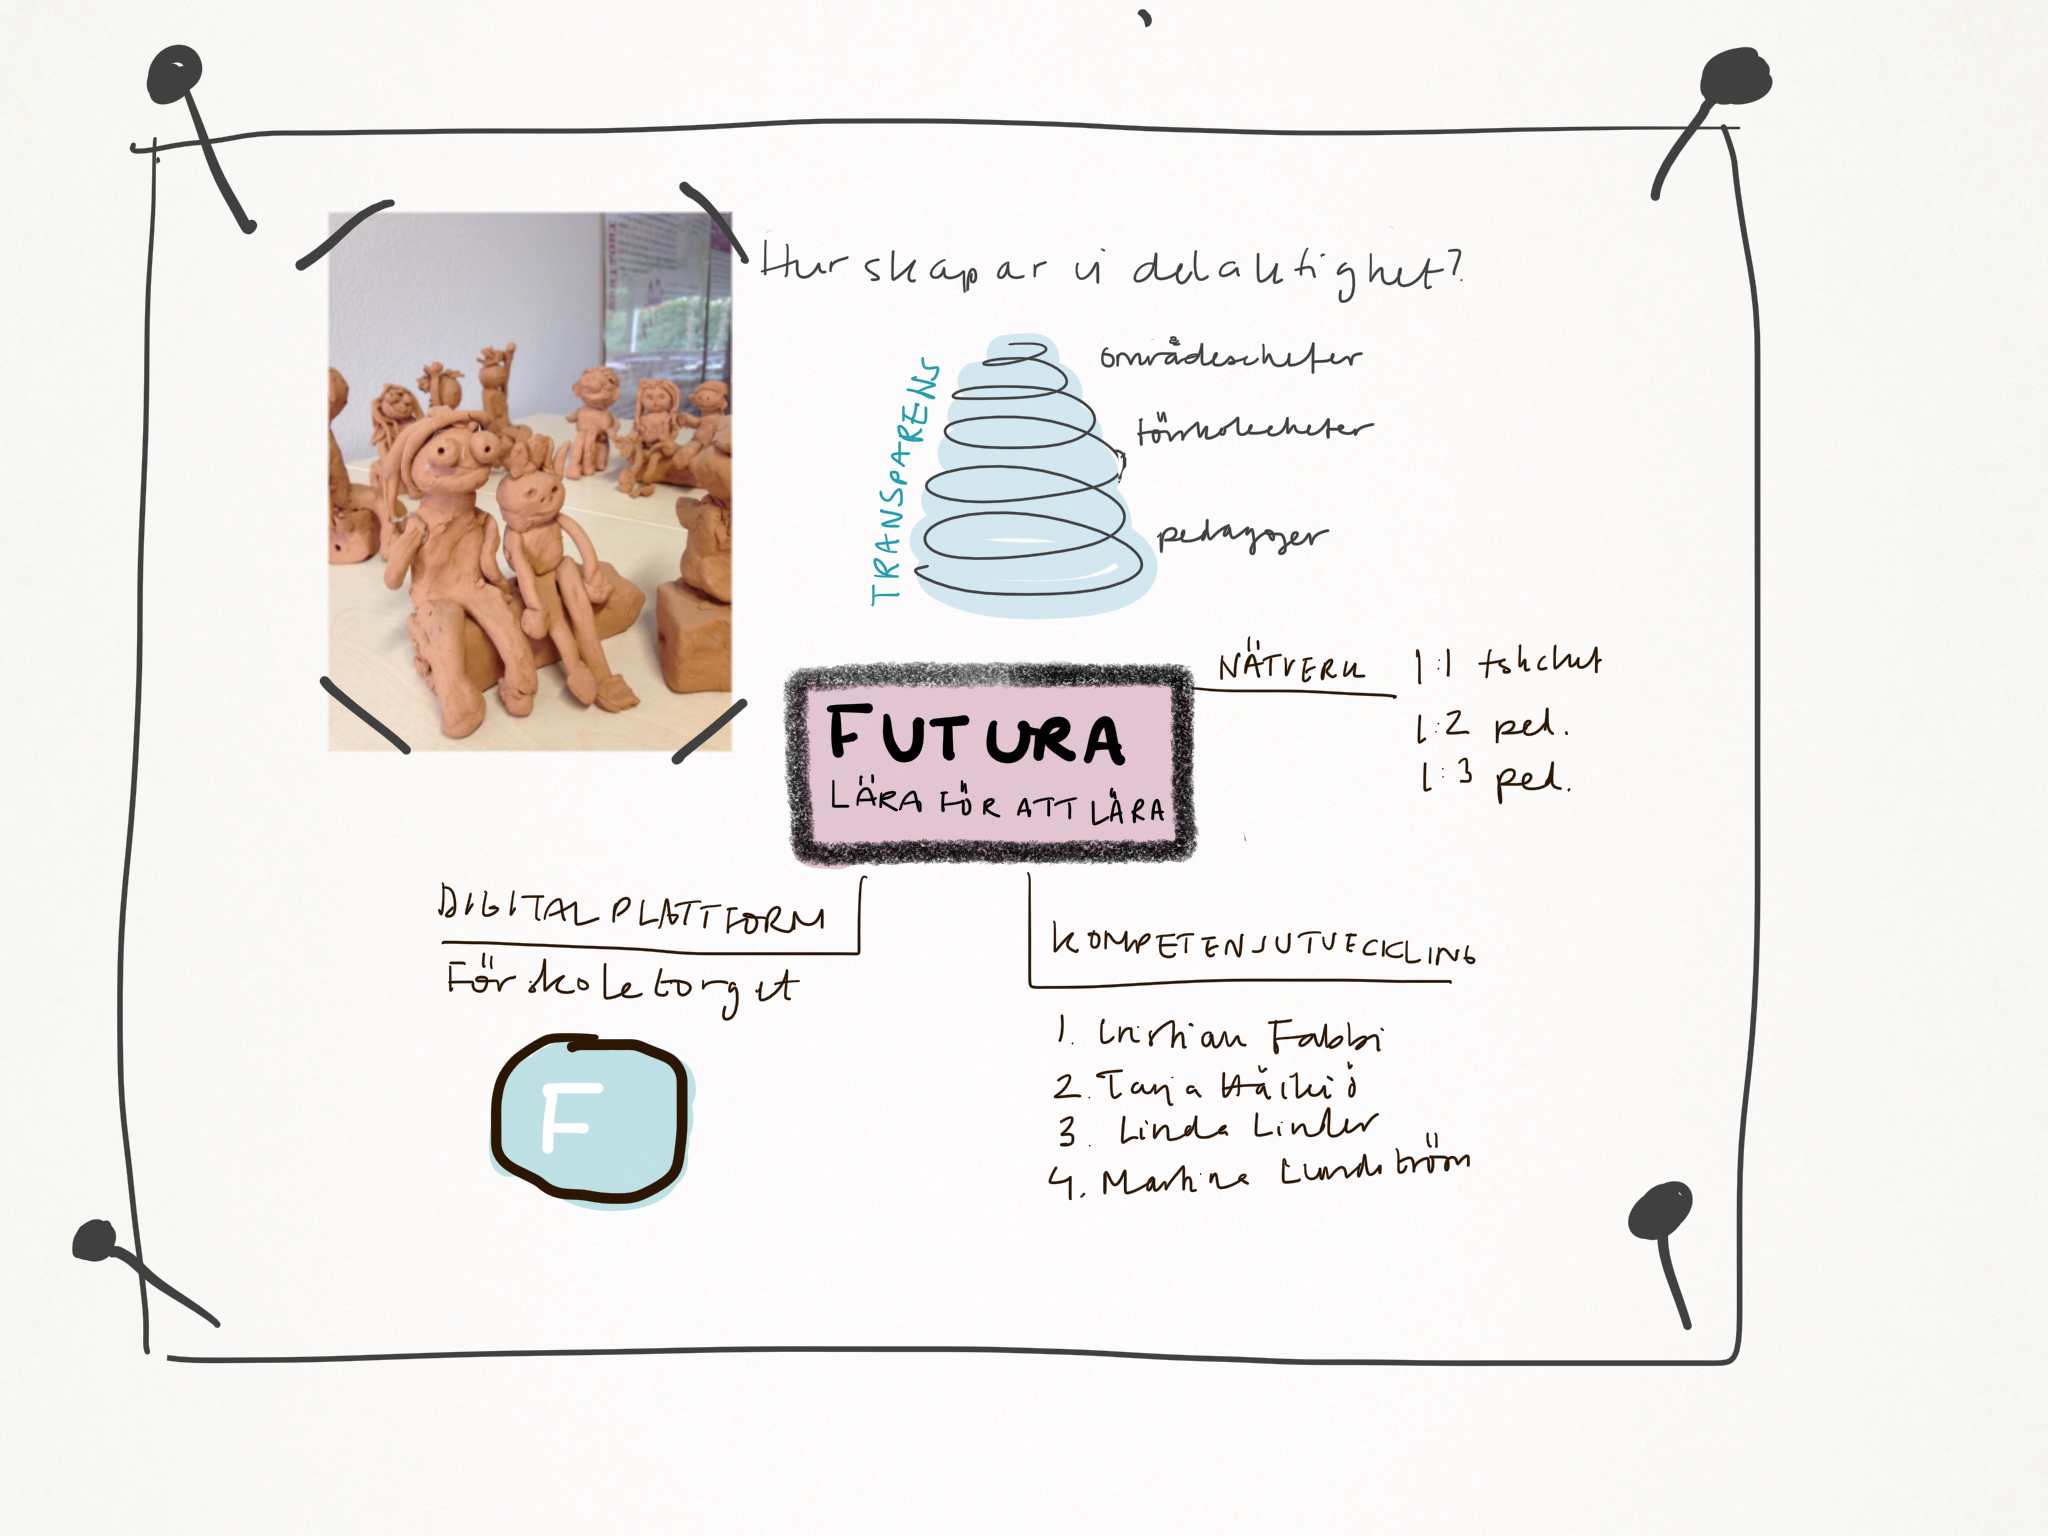 Hur skapar vi delaktighet?
TRANSPARENS
områdeschefer
förskolechefer
pedagoger
NÄTVERK
1:1 fskchef
1:2 ped.
1:3 ped.
FUTURA
LÄRA FÖR ATT LÄRA
DIGITAL PLATTFORM
Förskoletorget
F
KOMPETENSUTVECKLING
1. Cristian Fabbi
2. Tanja
3. Linda Linder
4. Martina Lundström